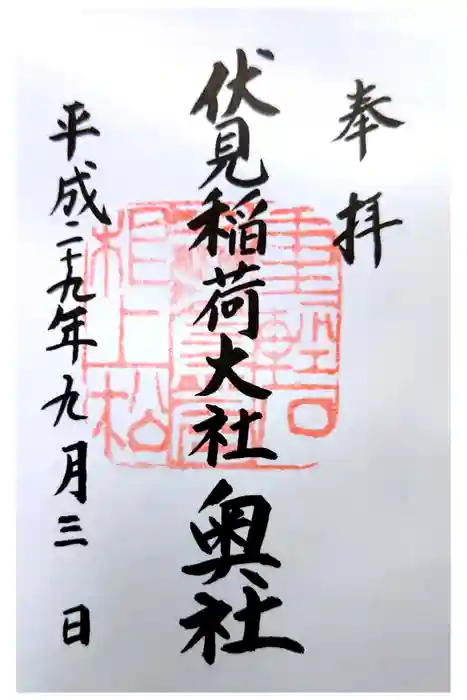 奉拝
伏見稲荷大社 奥社
平成二十九年九月三日